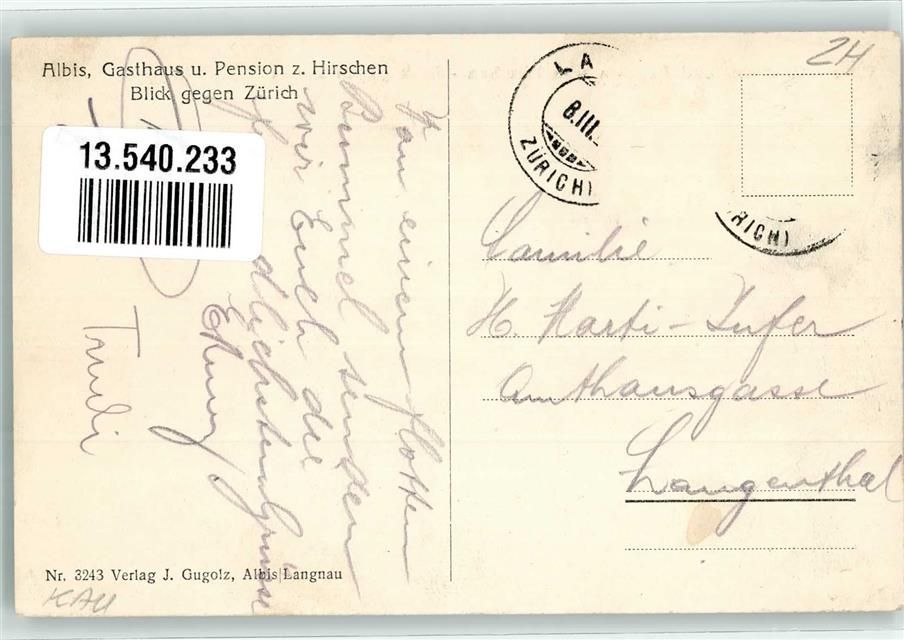 Albis, Gasthaus u. Pension z. Hirschen
Blick gegen Zürich
13.540.233
ZH
LA
8.III.
ZÜRICH)
RICH)
einem flotten
Bummel senden
wir Euch die
Trudi
Familie
H. Marti-Zufer
Amthausgasse
Langenthal
Nr. 3243 Verlag J. Gugolz, Albis Langnau
KAU